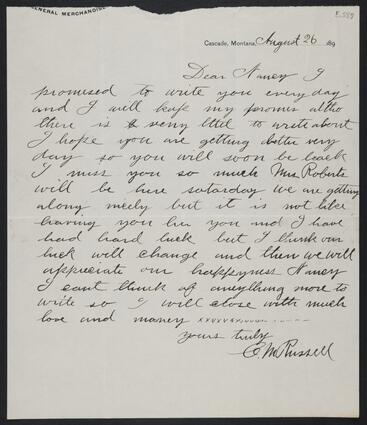 GENERAL MERCHANDISE
E.589
Cascade, Montana, August 26 189
Dear Nancy I
promised to write you every day
and I will keep my promis altho
there is veny littel to write about
I hope you are getting better very
day so you will soon be back
I miss you so much Mrs Roberts
will be here saturday we are getting
along nicely but it is not like
having you her you and I have
had hard luck but I think our
luck will change and then we will
appreciate our happyness Nancy
I cant think of aneything more to
write so I will close with much
love and maney xxxxxxx
yours truly
C M Russell